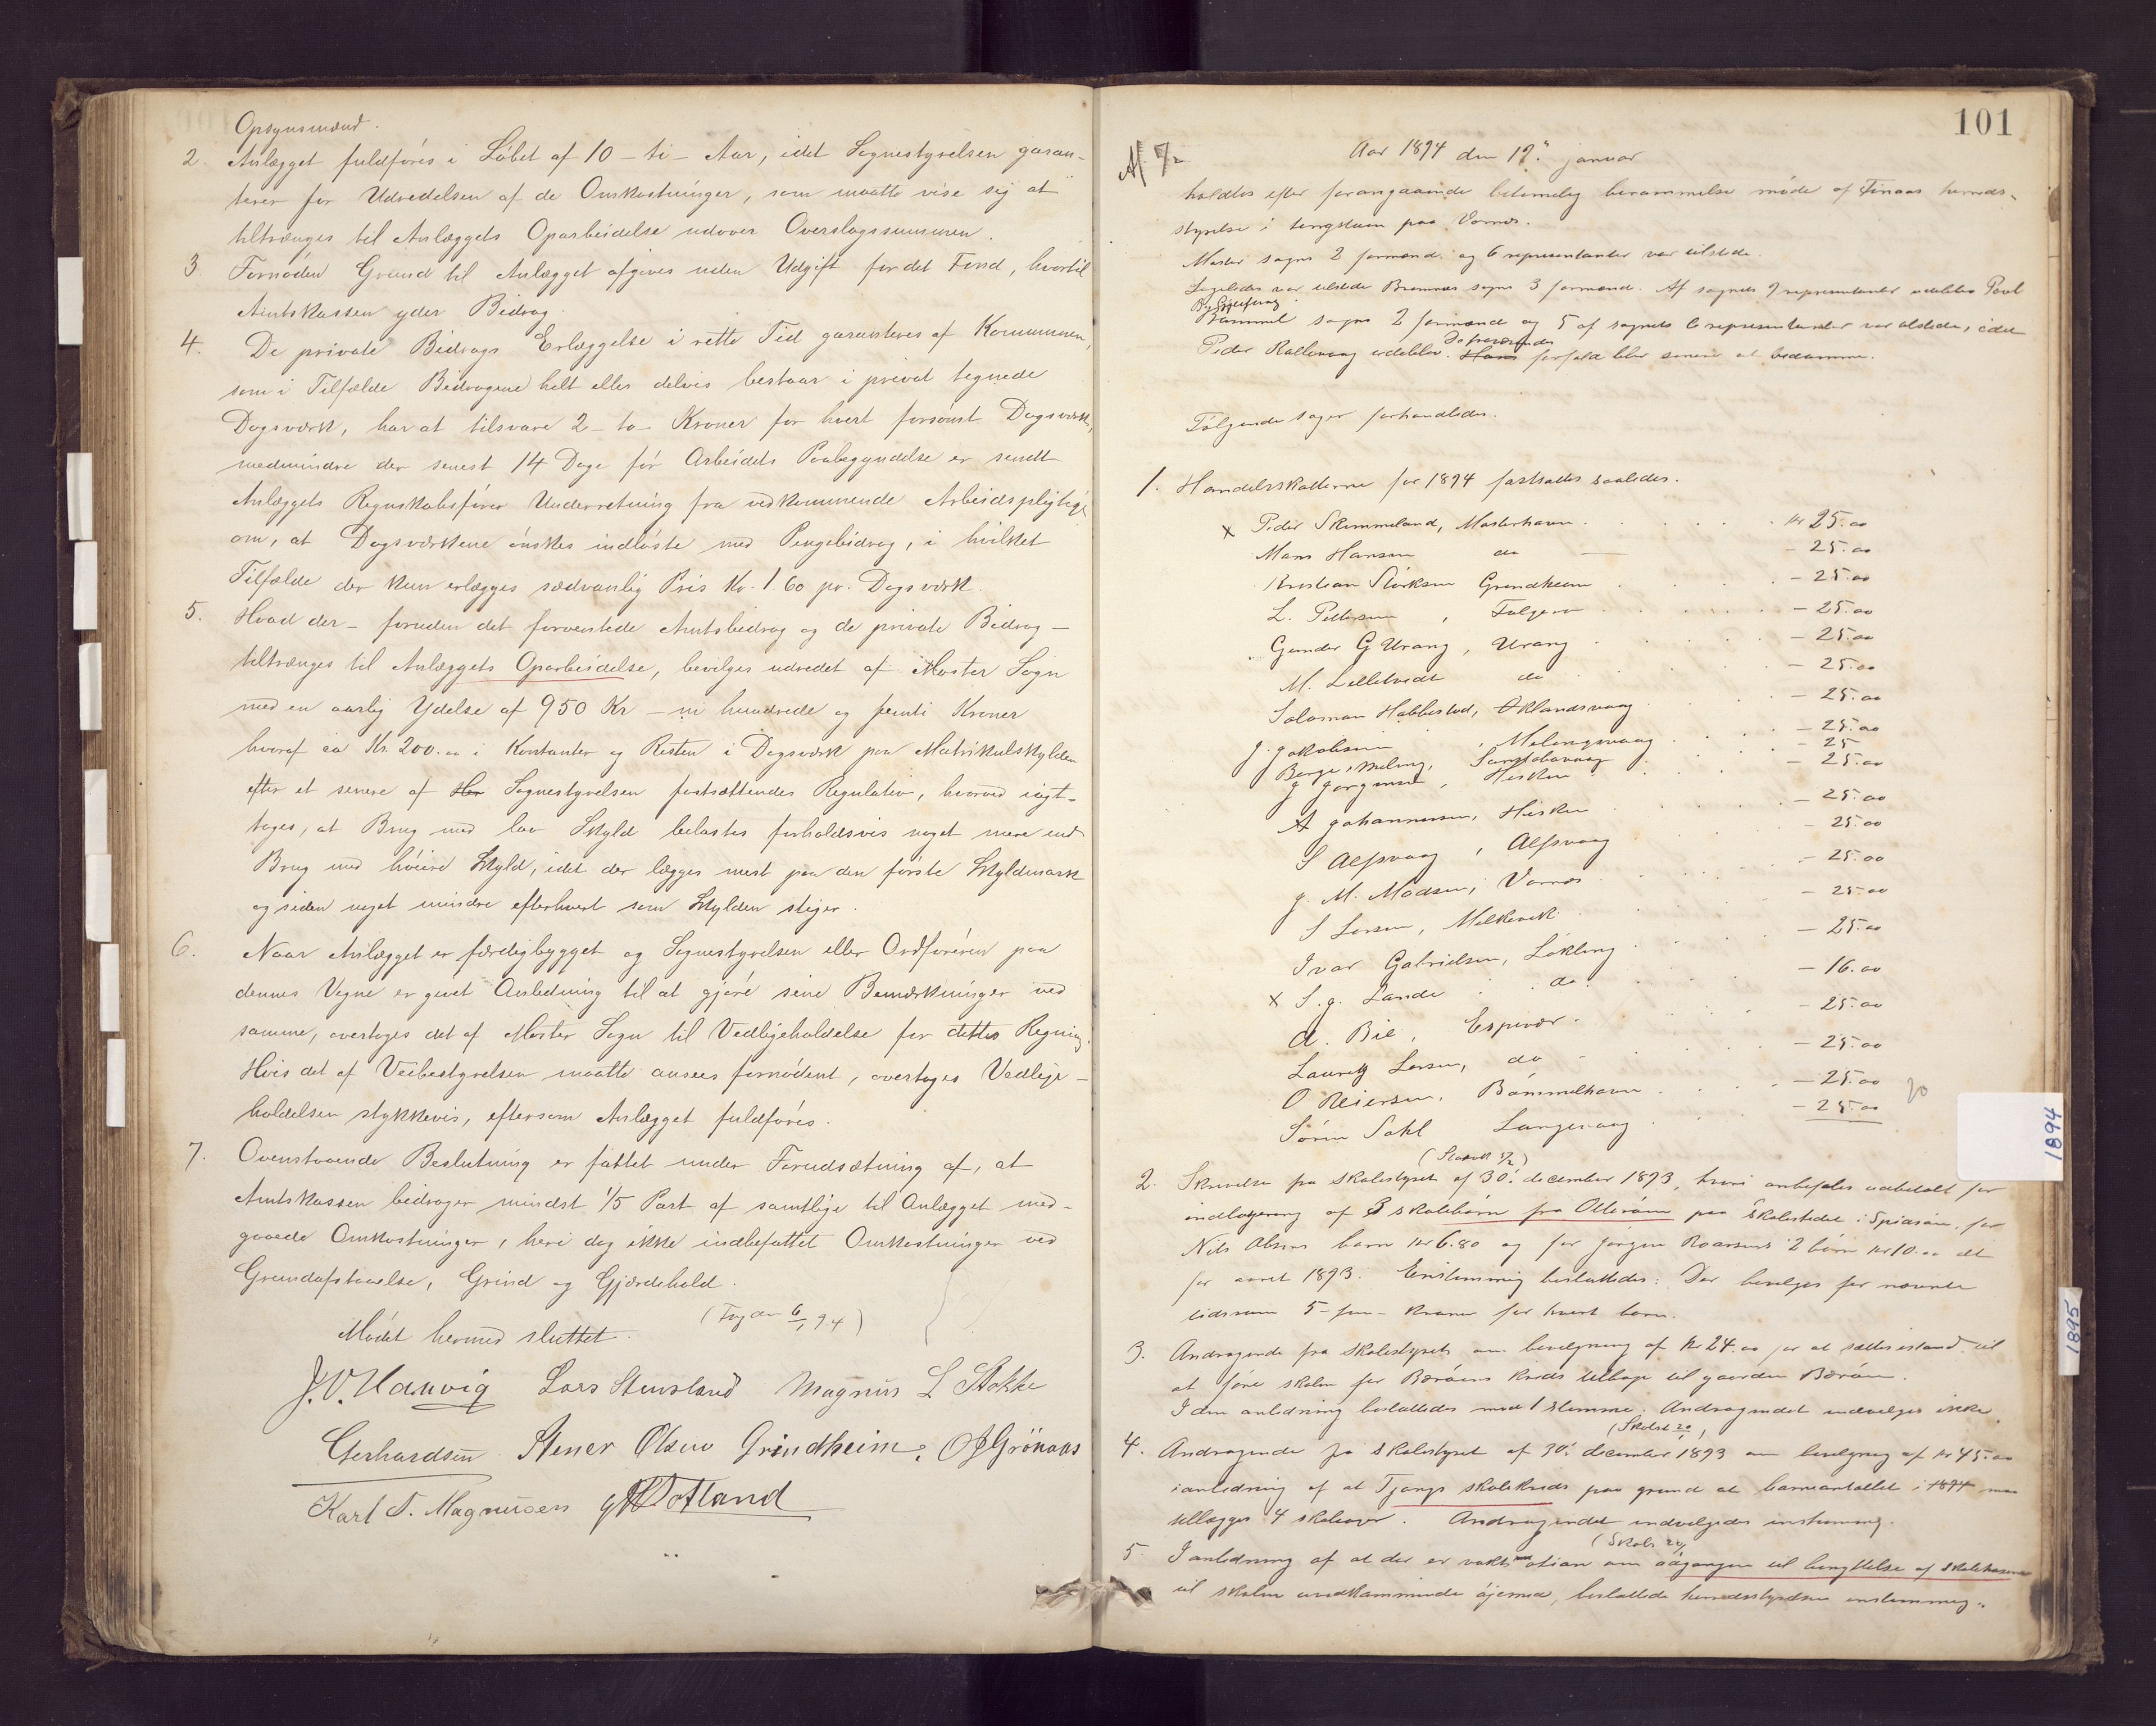 Opsynsmænd.
2. Anlægget fuldføres i Løbet af 10 - ti - Aar, idet Sognestyrelsen garan-
terer for Udredelsen af de Omkostninger, som maatte vise sig at
tiltrænges til Anlæggets Oparbeidelse udover Overslagssummen.
3. Fornøden Grund til Anlægget afgives uden Udgift for det Fond, hvortil
Amtskassen yder Bidrag.
4. De private Bidrags Erlæggelse i rette Tid garanteres af Kommunen,
som i Tilfælde Bidragene helt eller delvis bestaar i privat tegnede
Dagsværk, har at tilsvare 2 - to - Kroner for hvert forsømt Dagsværk,
medmindre der senest 14 Dage før Arbeidets Paabegyndelse er sendt
Anlæggets Regnskabsfører Underretning fra vedkommende Arbeidspligtige
om, at Dagsværkene ønskes indløste med Pengebidrag, i hvilket
Tilfælde der kun erlægges sædvanlig Pris Kr. 1.60 pr. Dagsværk.
5. Hvad der - foruden det forventede Amtsbidrag og de private Bidrag -
tiltrænges til Anlæggets Oparbeidelse, bevilges udredet af Moster Sogn
med en aarlig Ydelse af 950 Kr - ni hundrede og femti Kroner
hvoraf ca Kr. 200.00 i Kontanter og Resten i Dagsværk paa Matrikulskylden
efter et senere af Her Sognestyrelsen fastsættendes Regulativ, hvorved iagt-
tages, at Brug med lav Skyld belastes forholdsvis noget mere end
Brug med høiere Skyld, idet der lægges mest paa den første Skyldmark
og siden noget mindre efterhvert som Skylden stiger.
6. Naar Anlægget er færdigbygget og Sognestyrelsen eller Ordføreren paa
dennes Vegne er givet Anledning til at gjøre sine Bemærkninger ved
samme, overtages det af Moster Sogn til Vedligeholdelse for dettes Regning.
Hvis det af Veibestyrelsen maatte ansees fornødent, overtages Vedlige-
holdelsen stykkevis, eftersom Anlægget fuldføres.
7. Ovenstaaende Beslutning er fattet under Forudsætning af, at
Amtskassen bidrager mindst 1/5 Part af samtlige til Anlægget med-
gaaede Omkostninger, heri dog ikke indbefattet Omkostninger ved
Grundafstaaelse, Grind og Gjærdehold.
Mødet hermed sluttet.
J. V. Hanvig Lars Stensland Magnus L Stokke
Gerhardsen Stener Olsen Grindheim. O J Grönaas
Karl T. Magnusen
101
Aar 1894 den 19.' januar
holdtes efter forangaaende betimelig berammelse møde af Finaas herreds-
styrelse i tingstuen paa Vornes.
Moster sogns 2 formænd og 6 representanter var tilstede.
Ligeledes var tilstede Bremnes sogns 3 formænd. Af sognets 9 representanter udeblev Povl
Bømmel sogns 2 formænd og 5 af sognets 6 representanter var tilstede, idet
Peder udeblev. Hans forfald blev senere at bedømme.
Følgende sager forhandledes.
1. Handelsskatterne for 1894 fastsattes saaledes.
x Peder Skimmeland, Mosterhavn . . . kr 25.00
Mons Hansen do — - 25.00
Kristian Størksen Grindheim - 25.00
L. Pettersen, Folgerø - 25.00
Gunder G Urang, Urang - 25.00
M. Lilletvedt do - 25.00
Salomon Habbestad, Øklandsvaag - 25.00
J. Jakobsen, Melingsvaag - 25.00
Børge Meling, - 25
J Jørgensen, Hisken - 25.00
A Johannessen, Hisken - 25.00
S Alfsvaag, Alfsvaag - 25.00
J M. Madsen, Vornes - 25.00
S Larsen, Melkevik - 25.00
Ivar Gabrielsen, Løkling - 25.00
x S. J. Lande do. - 16.00
A. Bie, Espevær. - 25.00
Lauritz Larsen, do - 25.00
O Reiersen, Bømmelhavn - 25.00
Søren Dahl Langevaag - 25.00
2. Skrivelse fra skolestyret af 30.' december 1893, hvori anbefales udbetalt for
indlogering af 3 skolebørn fra Otterøen paa skolestedet i Spissøen, for
Nils Olsens barn kr 6.80 og for Jørgen Roarsens 2 børn kr 10.00 alt
for aaret 1893. Enstemmig besluttedes: Der bevilges for nævnte
tidsrum 5 - fem - kroner for hvert barn.
3. Andragende fra skolestyret om bevilgning af kr 24.00 for at sættes istand til
at føre skolen for Bærøens kreds tilbage til gaarden Bærøen.
I den anledning besluttedes med 1 stemme: Andragendet indvilges ikke.
4. Andragende fra skolestyret af 30.' december 1893 om bevilgning af kr 45.00
i anledning af at Tjongs skolekreds paa grund af barneantallet i 1894 maa
tillægges 4 skoleuger. Andragendet indvilgedes enstemmig.
5. I anledning af at der er vakt motion om adgangen til benyttelse af skolehusene
til skolen uvedkommende øjemed, besluttede herredsstyrelsen enstemmig:
1894
1895